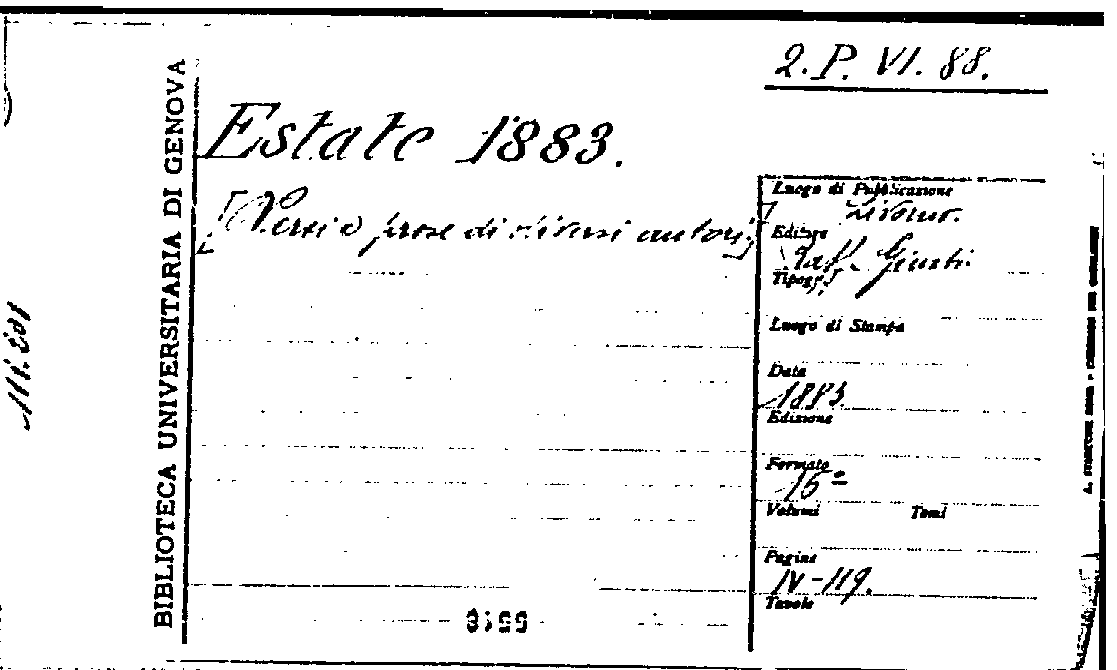 2. P. VI. 88.
BIBLIOTECA UNIVERSITARIA DI GENOVA
Estate 1883.
[Versi e prose di diversi autori]
Luogo di Pubblicazione
Livorno.
Editore
Raff. Giusti.
Tipogr.
Luogo di Stampa
Data
1883.
Edizione
Formato
16º
Volumi Tomi
Pagine
IV-119.
Tavole